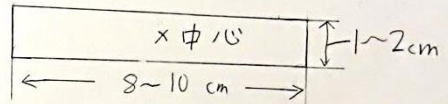 ×中心
1~2cm
8~10 cm